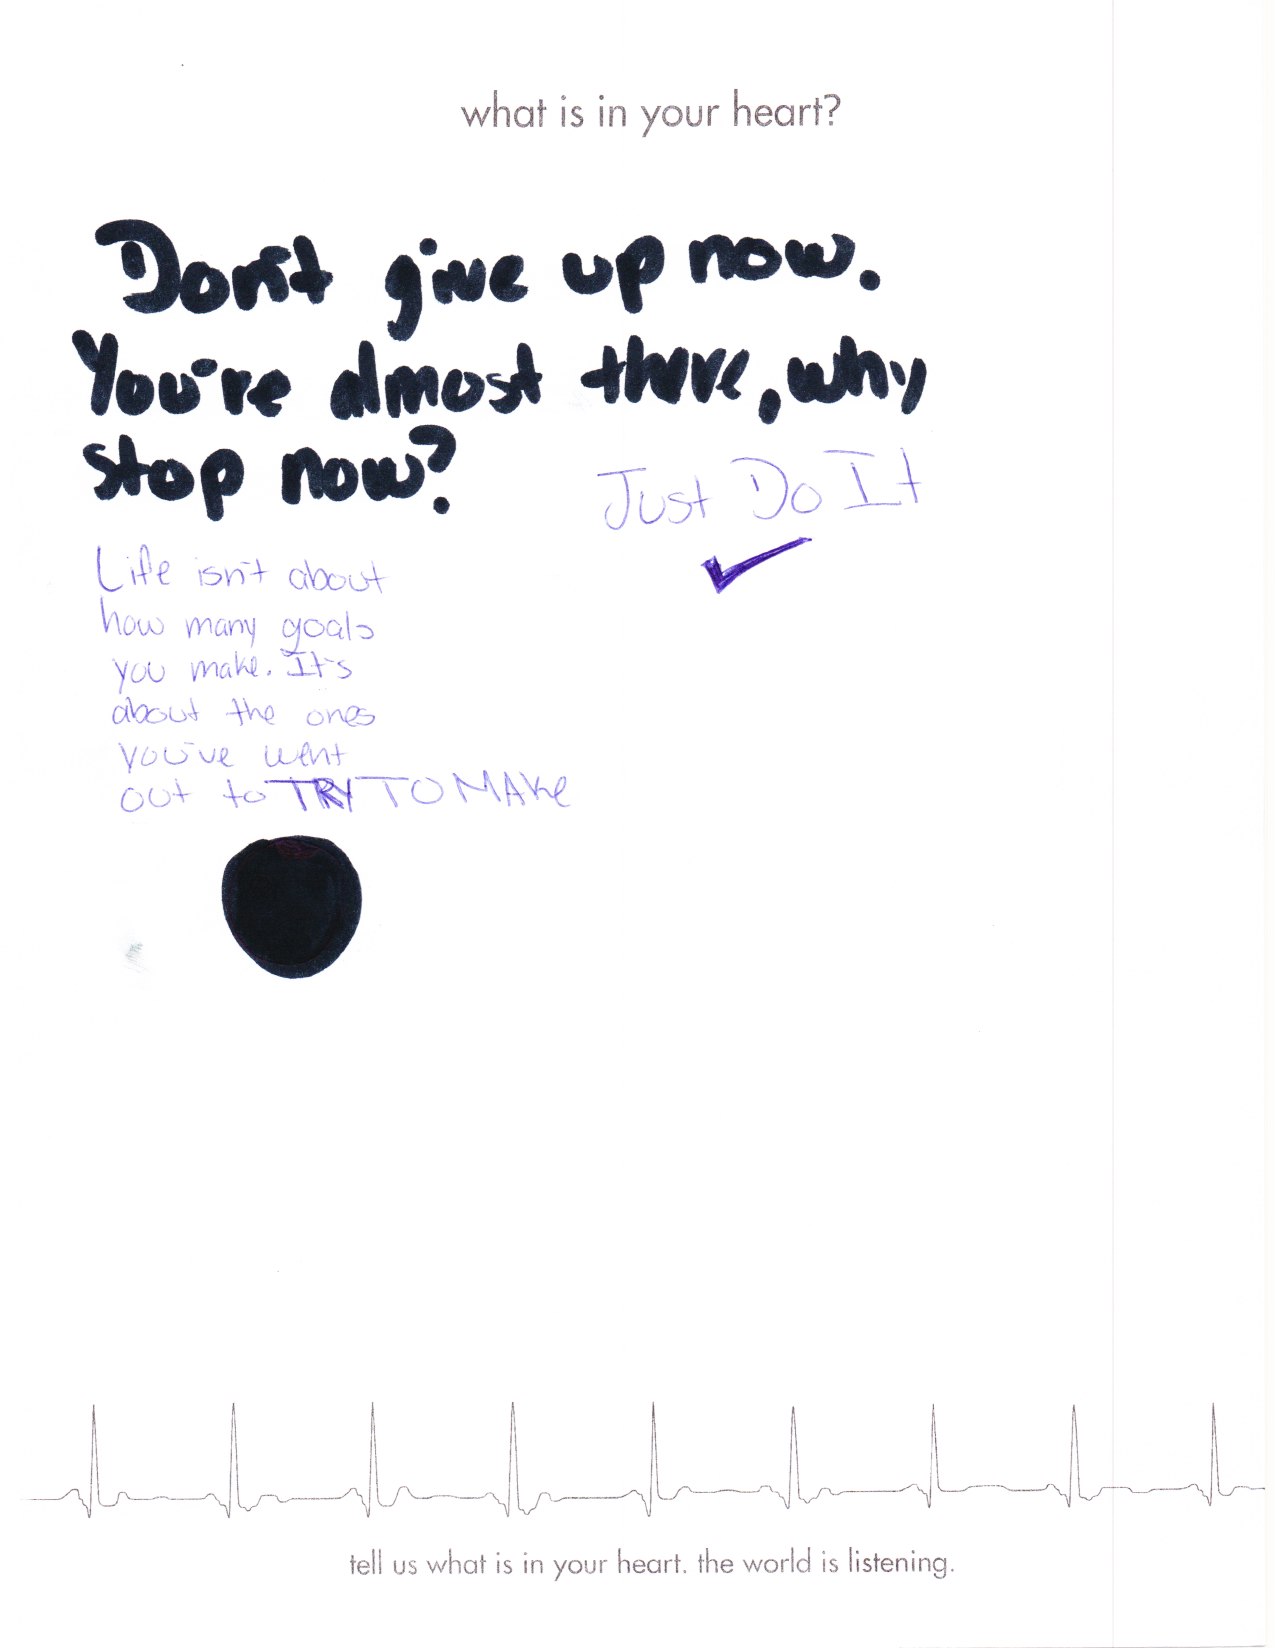 what is in your heart?
Don't give up now.
You're almost there, why
stop now?
Just Do It
Life isn't about
how many goals
you make. It's
about the ones
you've went
out to TRY TO MAKe
tell us what is in your heart. the world is listening.